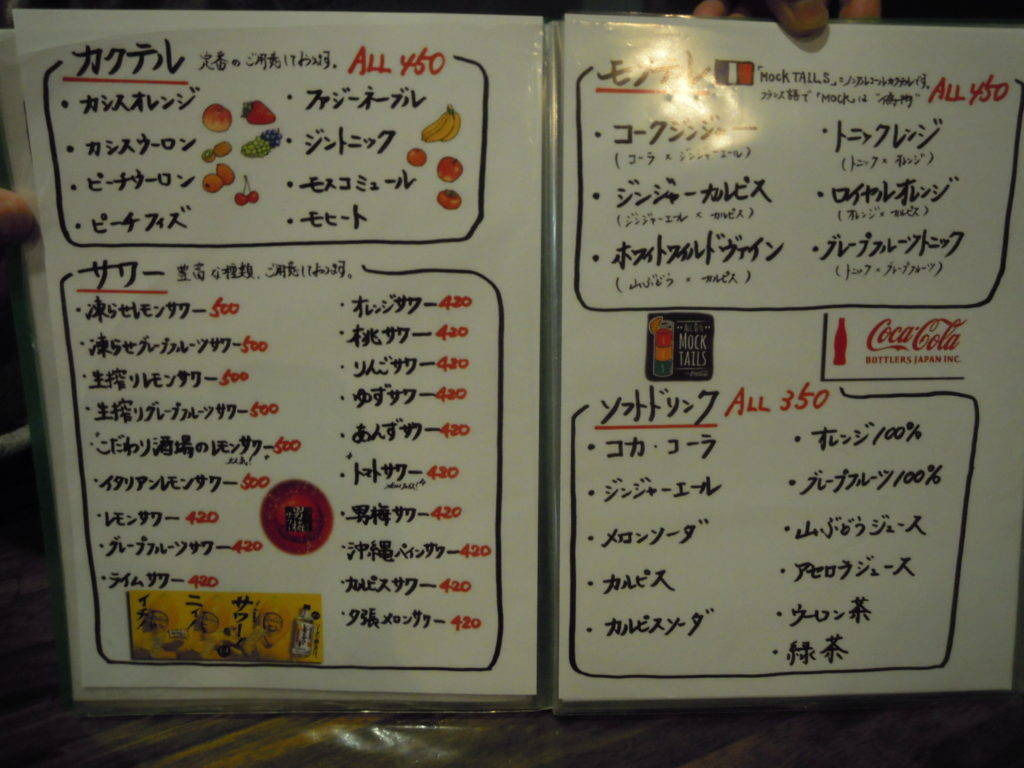 カクテル 定番のご用意しております。 ALL 450
・カシスオレンジ
・カシスウーロン
・ピーチウーロン
・ピーチフィズ
・ファジーネーブル
・ジントニック
・モスコミュール
・モヒート
サワー 豊富な種類、ご用意しております。
・凍らせレモンサワー 500
・凍らせグレープフルーツサワー 500
・生搾りレモンサワー 500
・生搾りグレープフルーツサワー 500
・こだわり酒場のレモンサワー 500
・イタリアンレモンサワー 500
・レモンサワー 420
・グレープフルーツサワー 420
・ライムサワー 420
・オレンジサワー 420
・桃サワー 420
・りんごサワー 420
・ゆずサワー 420
・あんずサワー 420
・トマトサワー 420
・男梅サワー 420
・沖縄パインサワー 420
・カルピスサワー 420
・夕張メロンサワー 420
男梅
サワー
モクテル 「MOCKTAILS」=ノンアルコールカクテルです。 ALL 450
フランス語で「MOCK」は
・コークジンジャー
(コーラ×ジンジャーエール)
・ジンジャーカルピス
(ジンジャーエール×カルピス)
・ホワイトワイルドヴァイン
(山ぶどう×カルピス)
・トニックレンジ
(トニック×オレンジ)
・ロイヤルオレンジ
(オレンジ×カルピス)
・グレープフルーツトニック
(トニック×グレープフルーツ)
MOCK
TAILS
Coca-Cola
BOTTLERS JAPAN INC.
ソフトドリンク ALL 350
・コカ・コーラ
・ジンジャーエール
・メロンソーダ
・カルピス
・カルピスソーダ
・オレンジ100%
・グレープフルーツ100%
・山ぶどうジュース
・アセロラジュース
・ウーロン茶
・緑茶